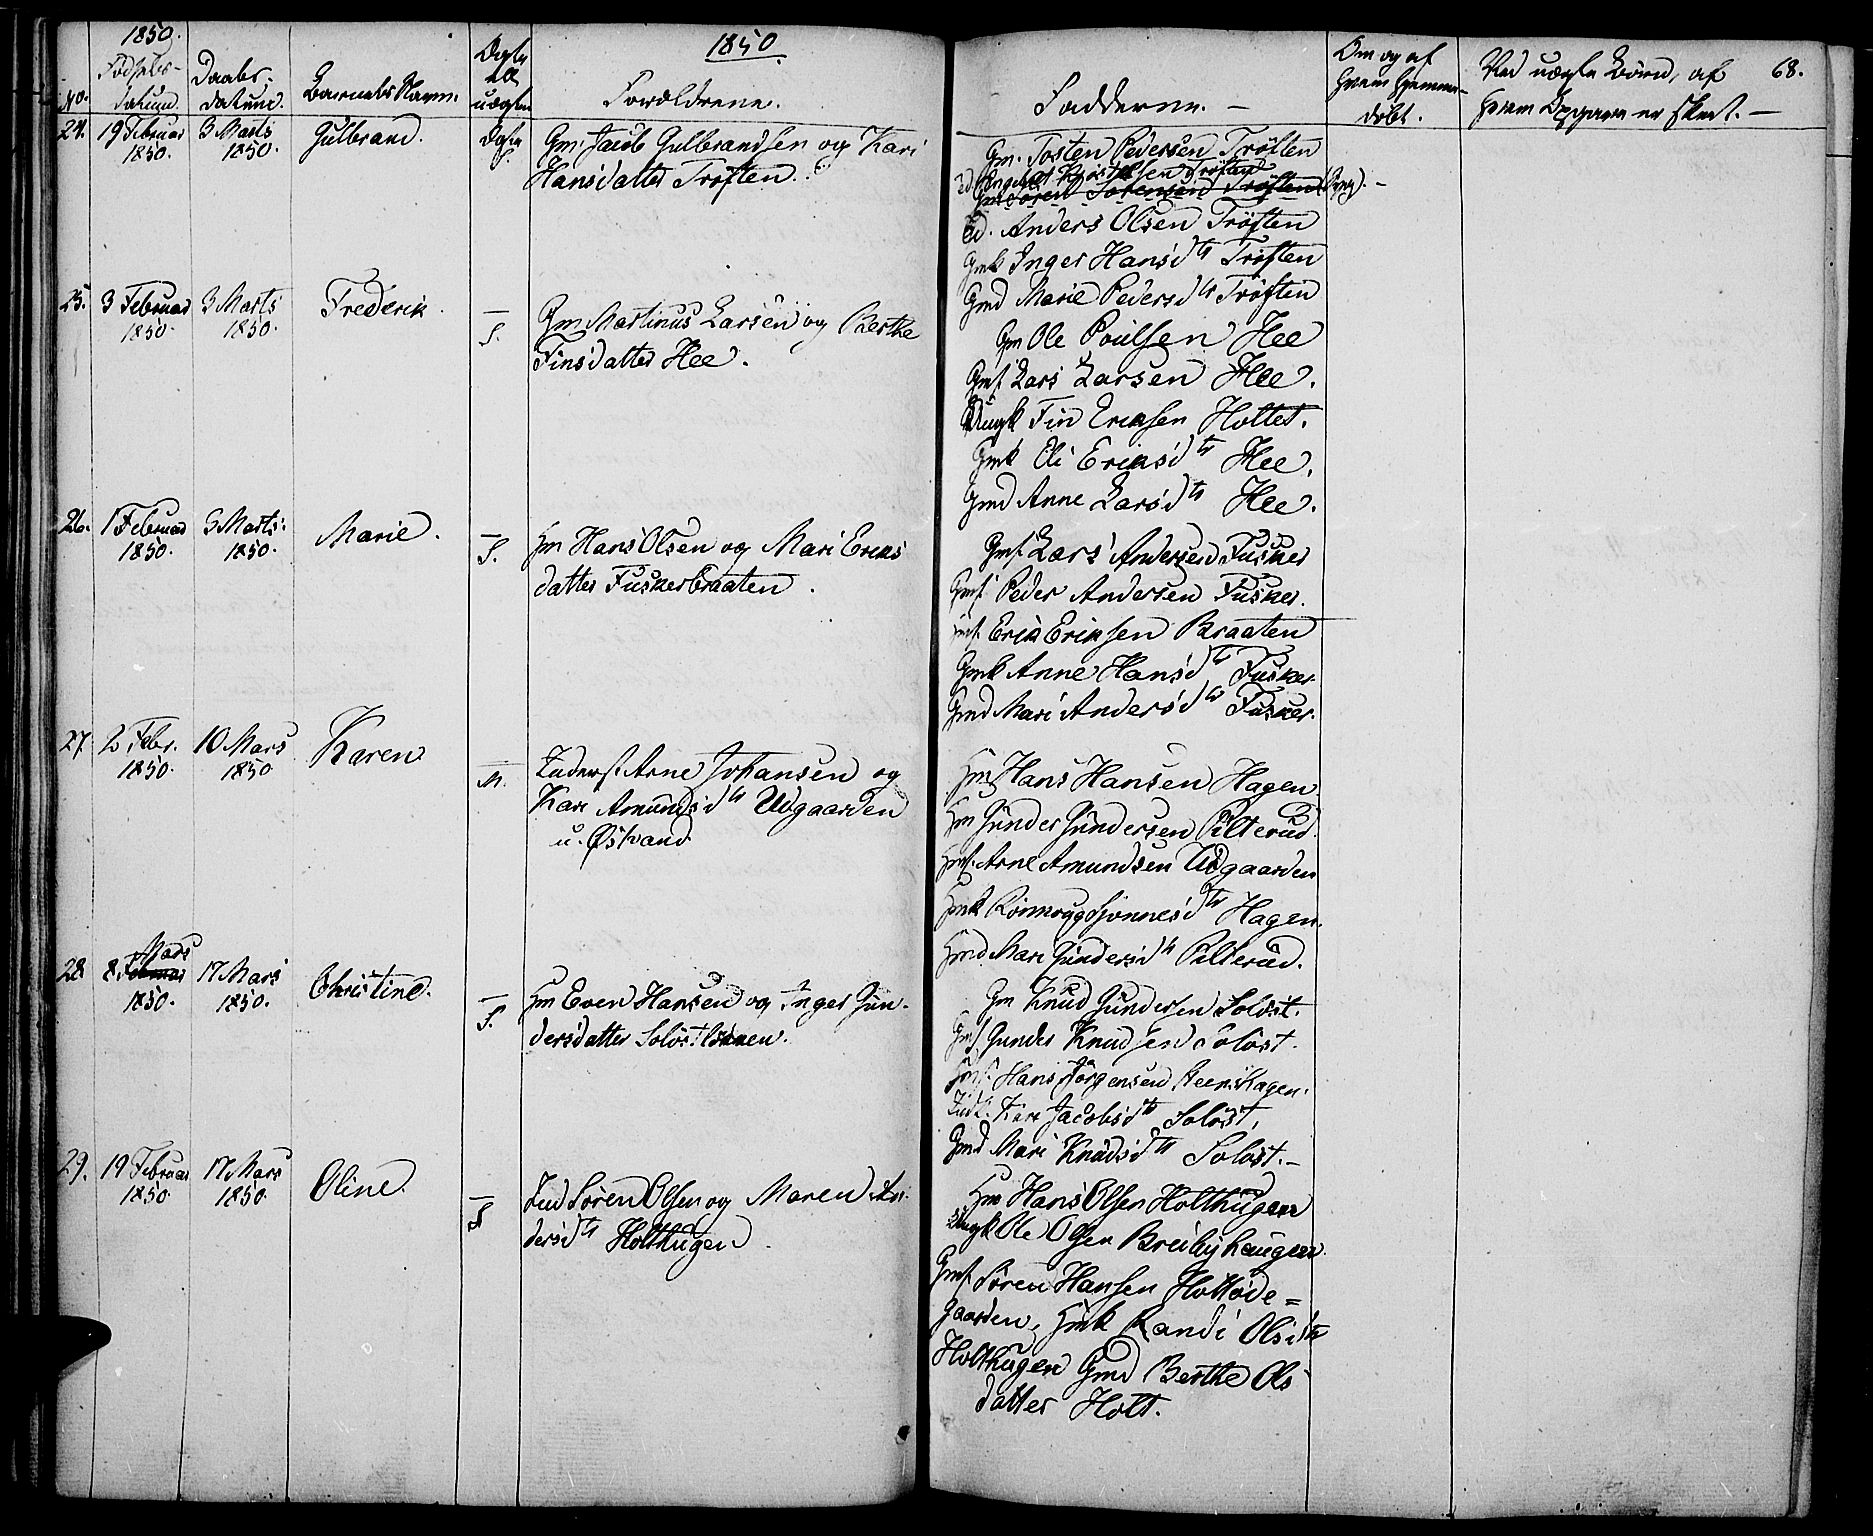 1850.
Fødsels-
Daabs-
Ægte
ell
1850
No.
datum.
datum.
Barnets Navn.
uægte
Forældrene.
Fadderne. -
Om og af
hvem hjemme-
døbt.
Ved uægte Børn, af
hvem Opgaven er skeet. -
68.
24.
19 Februar
1850.
3 Marts
1850.
Gulbrand.
Ægte
Gm. Jacob Gulbrandsen og Kari
Hansdatter Trøften.
Gm. Tosten Pedersen Trøften
Engebret Kristofersen Trøften
Gm Søren Sørensen Trøften
Anders Olsen Trøften
Gmk Inger Hansdtr Trøften
Gmd Marie Pedersdtr Trøften
25.
3 Februar
1850.
3 Marts
1850.
Frederik.
—
S.
Gm Martinus Larsen og Berthe
Finsdatter Hee.
Gm Ole Poulsen Hee
Gmf. Lars Larsen Hee.
Ungk Fin Eriksen Holtet.
Gmk Oli Eriksdtr Hee.
Gmd Anne Larsdtr Hee.
26.
1 Februar
1850.
3 Marts
1850.
Marie.
—
S.
Hm Hans Olsen og Mari Eriks
datter Fuskerbraaten.
Gmf. Lars Andersen Fusker
Gmf. Peder Andersen Fusker.
Erik Eriksen Braaten
Gmk Anne Hansdtr Fusker.
Gmd Mari Andersdtr Fusker.
27
2 Febr.
1850.
10 Mars
1850
Karen
—
M.
Inderst Arne Johansen og
Kari Amundsdtr Udgaarden
u. Østvand
Hm Hans Hansen Hagen.
Hm Gunder Gundersen Pilterud.
Hmf. Arne Amundsen Udgaarden
Hmk Rønnaug Simensdtr Hagen.
Hmd. Mari Gundersdtr Pilterud.
28
Mars
8 Februar
1850.
17 Mars
1850.
Christine.
—
S.
Hm Even Hansen og Inger Gun-
dersdatter Soløstløkken.
Gm Knud Gundersen Soløst.
Gmf. Gunder Knudsen Soløst.
Hmf. Hans Jørgensen Reenskagen.
Indk. Kari Jacobsdtr Soløst,
Gmd Mari Knudsdtr Soløst. -
29.
19 Februar
1850.
17 Mars
1850.
Oline.
—
S
Ind Søren Olsen og Maren An-
dersdtr Holthugen.
Hm Hans Olsen Holthugen
Ungk Ole Olsen Breibyhaugen.
Gmf. Søren Hansen Holtøde=
gaarden, Hmk Randi Olsdtr
Holthugen Gmd Berthe Ols
datter Holt.